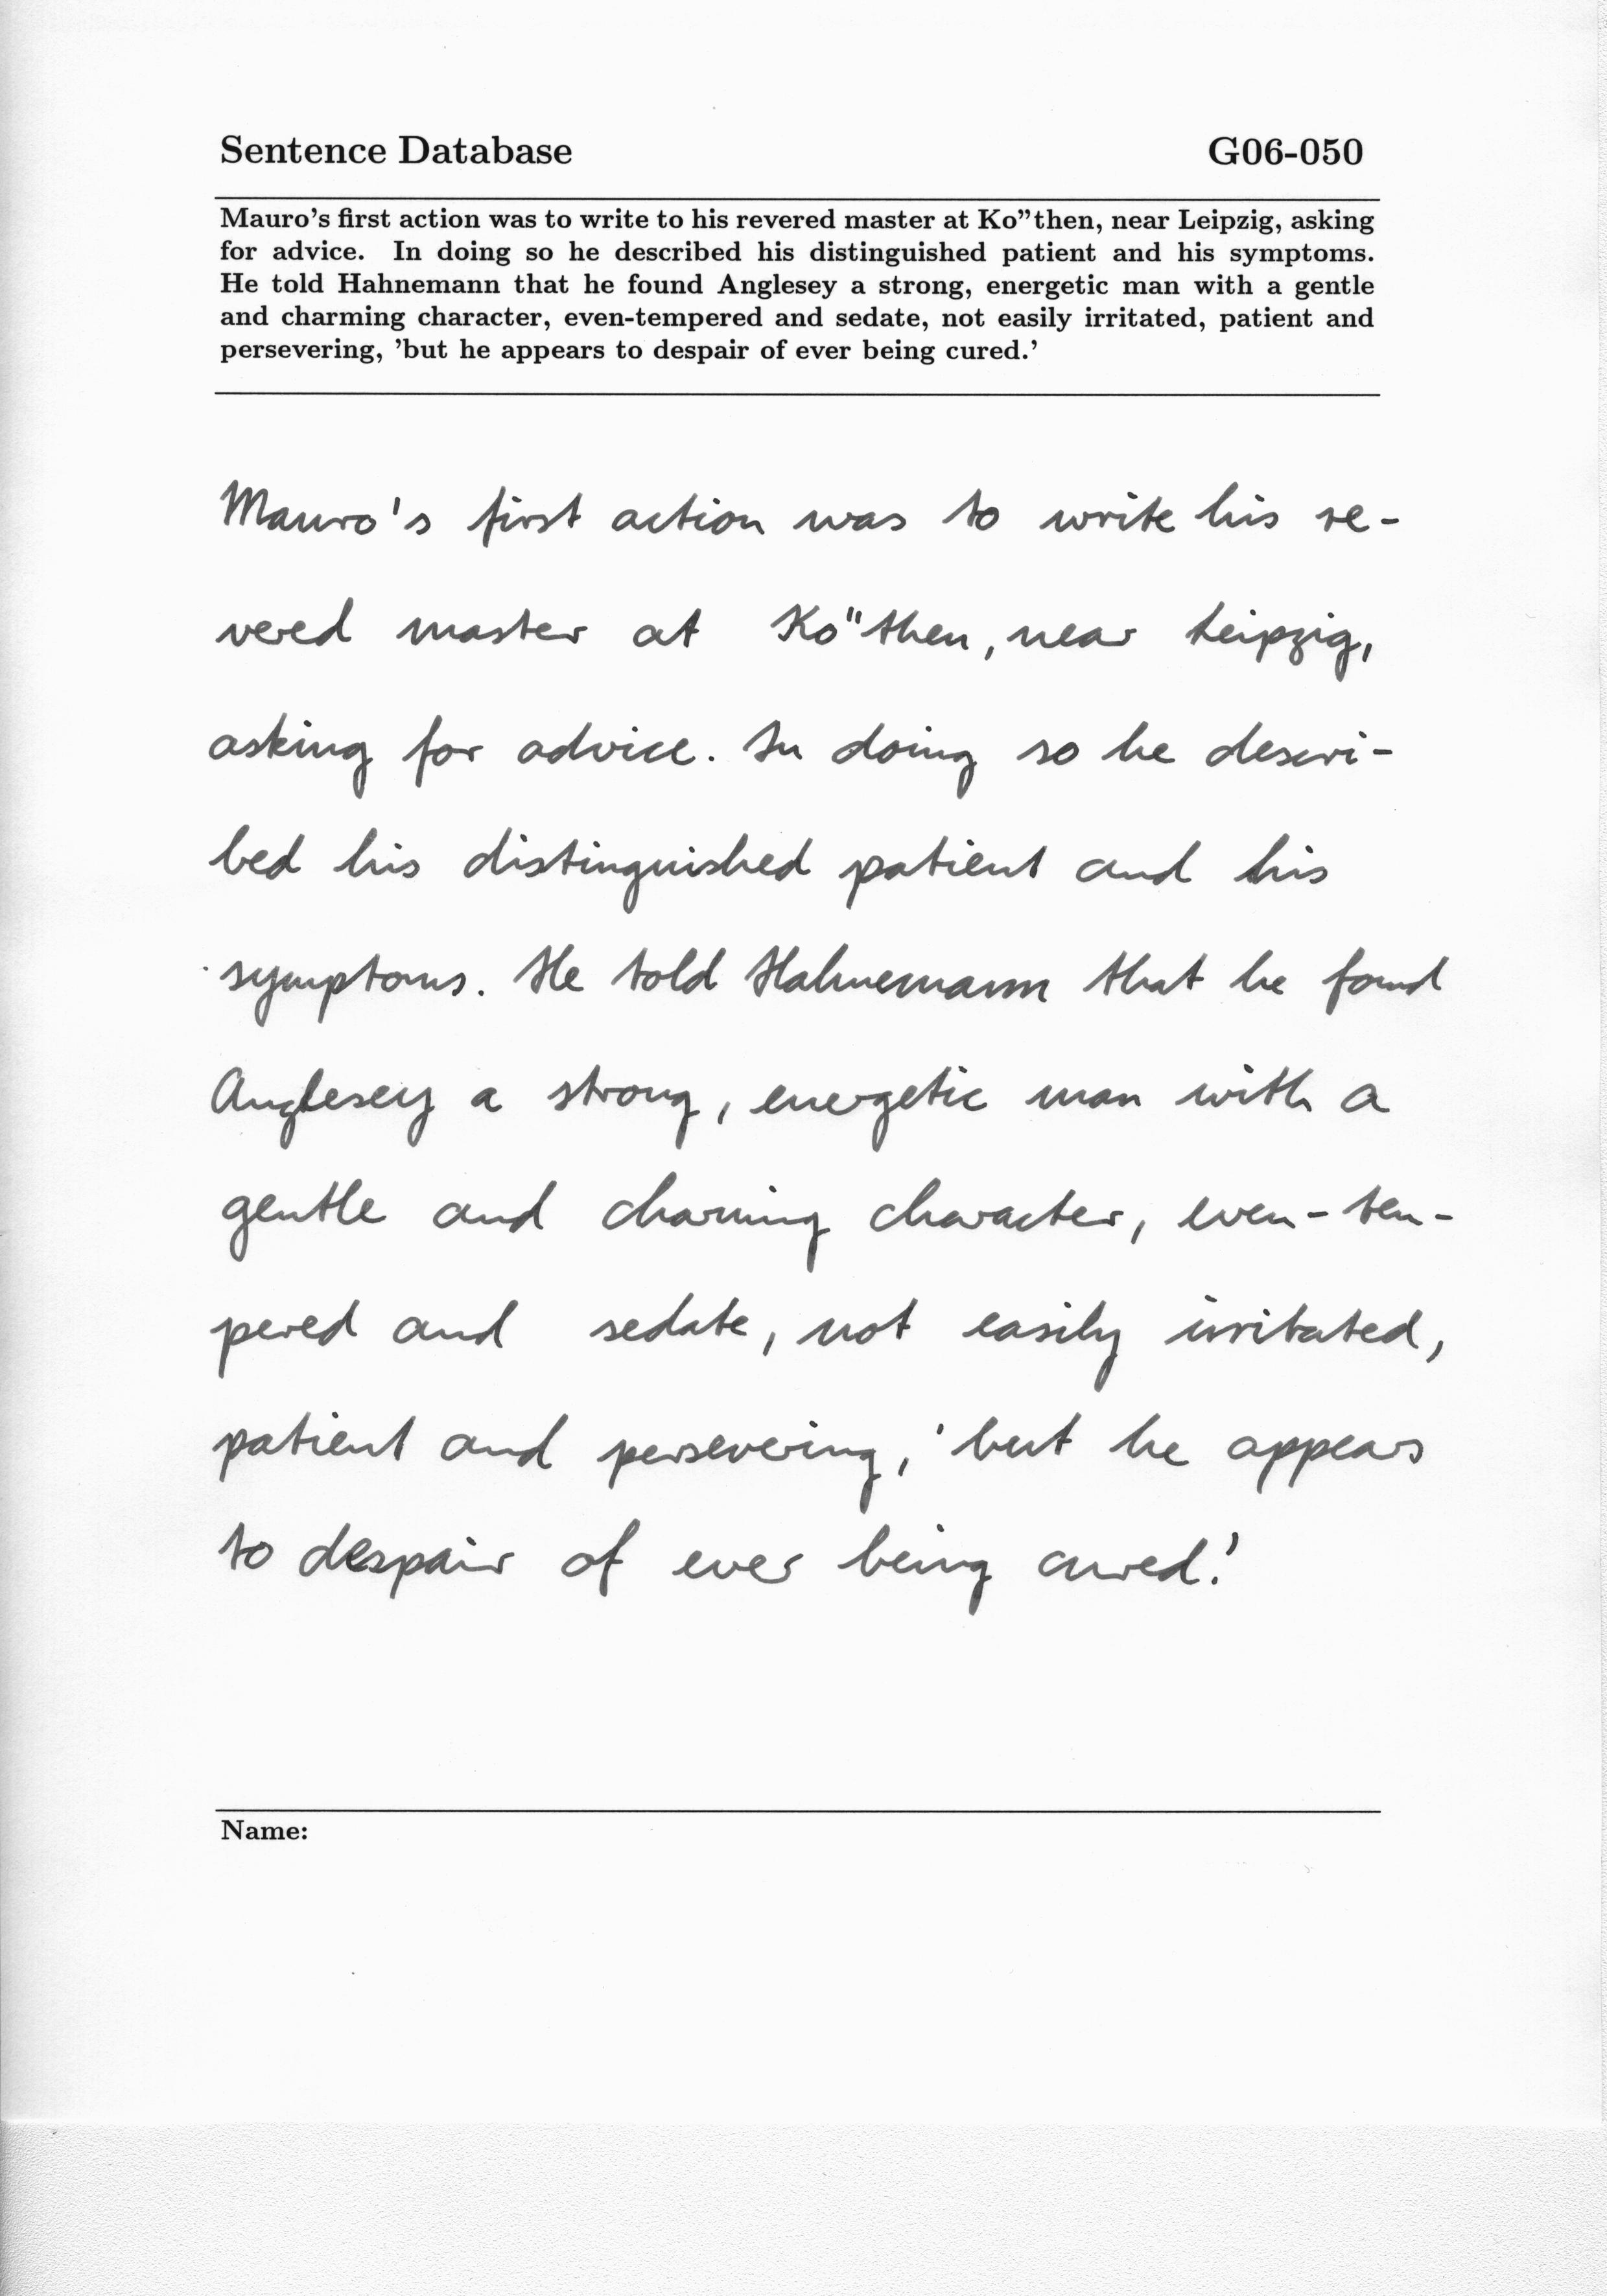 Sentence Database G06-050
Mauro's first action was to write to his revered master at Ko"then, near Leipzig, asking
for advice. In doing so he described his distinguished patient and his symptoms.
He told Hahnemann that he found Anglesey a strong, energetic man with a gentle
and charming character, even-tempered and sedate, not easily irritated, patient and
persevering, 'but he appears to despair of ever being cured.'
Mauro's first action was to write his re-
vered master at Ko"then, near Leipzig,
asking for advice. In doing so he descri-
bed his distinguished patient and his
symptoms. He told Hahnemann that he found
Anglesey a strong, energetic man with a
gentle and charming character, even-tem-
pered and sedate, not easily irritated,
patient and persevering, 'but he appears
to despair of ever being cured.'
Name: